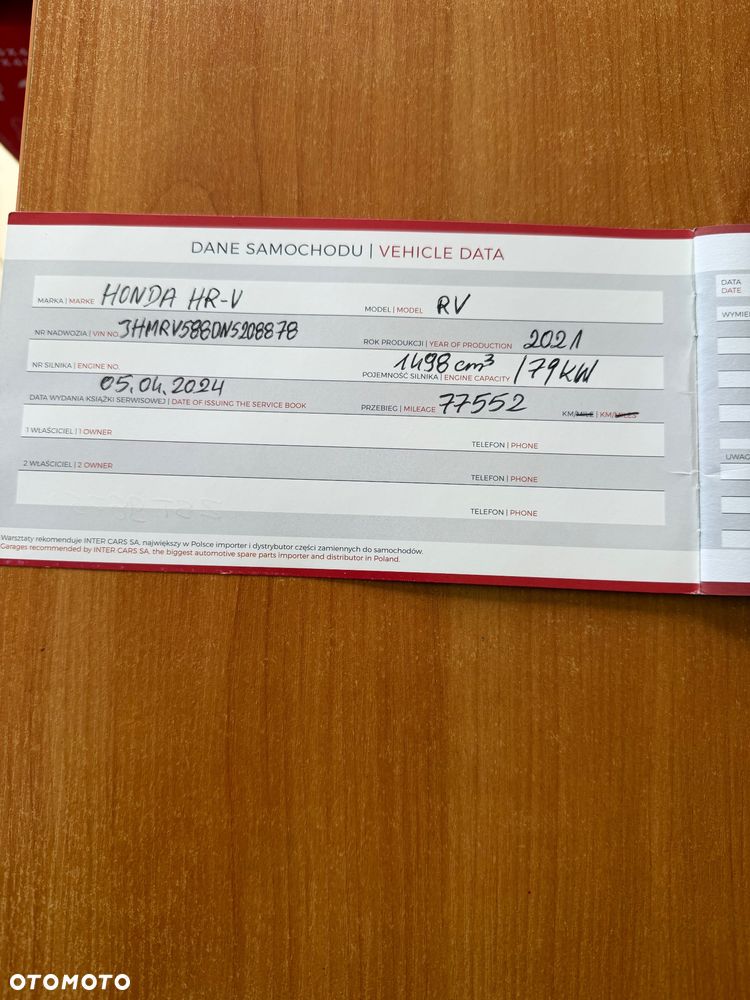 DANE SAMOCHODU | VEHICLE DATA
MARKA | MARKE HONDA HR-V
MODEL | MODEL RV
NR NADWOZIA | VIN NO. JHMRV5880NS208878
ROK PRODUKCJI | YEAR OF PRODUCTION 2021
NR SILNIKA | ENGINE NO.
POJEMNOŚĆ SILNIKA | ENGINE CAPACITY 1498 cm³ / 79 KW
DATA WYDANIA KSIĄŻKI SERWISOWEJ | DATE OF ISSUING THE SERVICE BOOK 05.04.2024
PRZEBIEG | MILEAGE 77552 KM/MILE | KM/MILES
1 WŁAŚCICIEL | 1 OWNER
TELEFON | PHONE
2 WŁAŚCICIEL | 2 OWNER
TELEFON | PHONE
TELEFON | PHONE
Warsztaty rekomenduje INTER CARS SA, największy w Polsce importer i dystrybutor części zamiennych do samochodów.
Garages recommended by INTER CARS SA, the biggest automotive spare parts importer and distributor in Poland.
DATA
DATE
WYMIE
UWAG
OTOMOTO